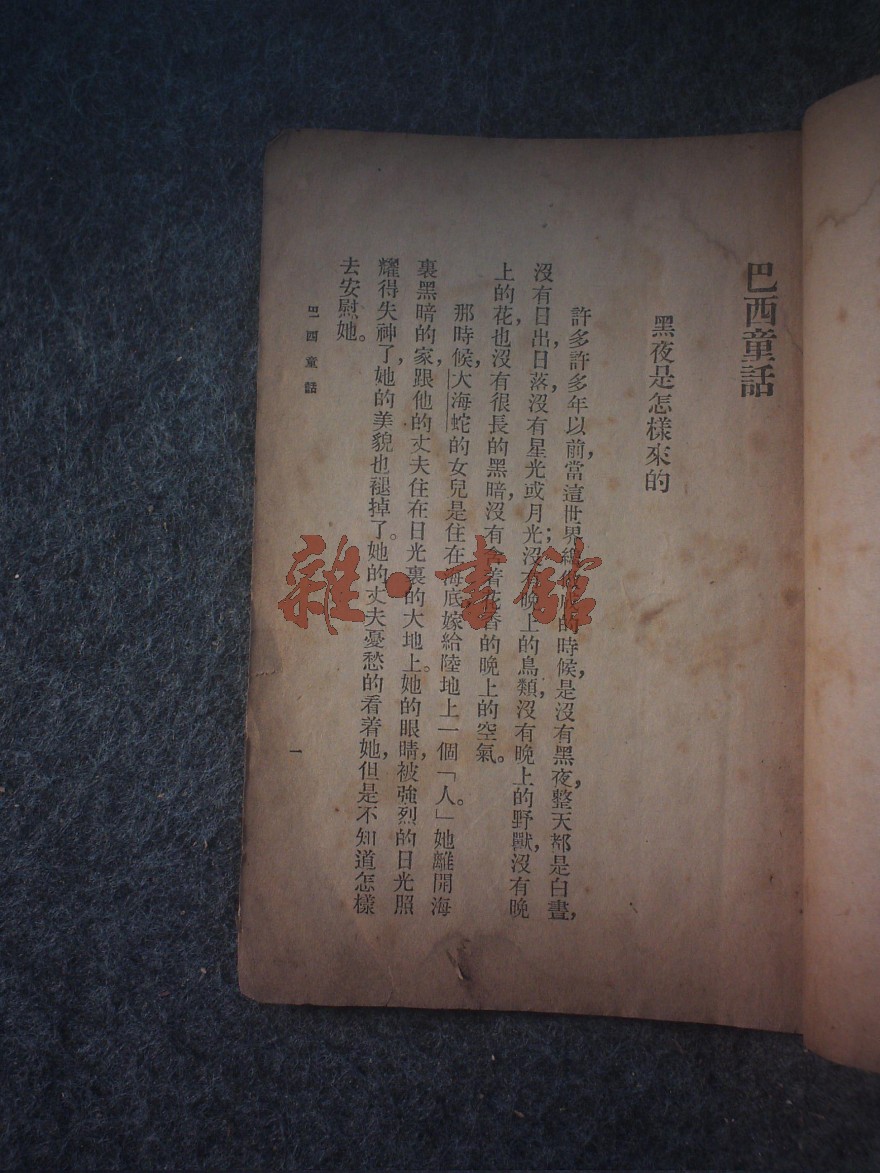 巴西童話
黑夜是怎樣來的
許多許多年以前，當這世界的時候，是沒有黑夜，整天都是白晝，
沒有日出日落，沒有星光或月光；沒有晚上的鳥類，沒有晚上的野獸，沒有晚
上的花，也沒有很長的黑暗，沒有含着花香的晚上的空氣。
那時候，大海蛇的女兒是住在海底，嫁給陸地上一個「人」。她離開海
裏黑暗的家，跟他的丈夫住在日光裏的大地上。她的眼睛，被強烈的日光照
耀得失神了，她的美貌也褪掉了。她的丈夫憂愁的看着她，但是不知道怎樣
去安慰她。
巴西童話
一
雜·書館